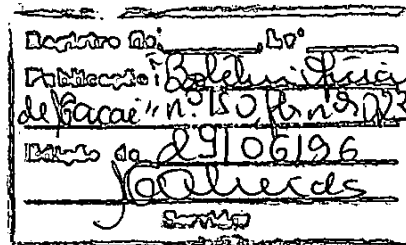 Registro Nº, Lvº
Publicação: "Boletim Oficial
de Macaé" nº 150, fls nº
Edição de 29/06/96
Servidor